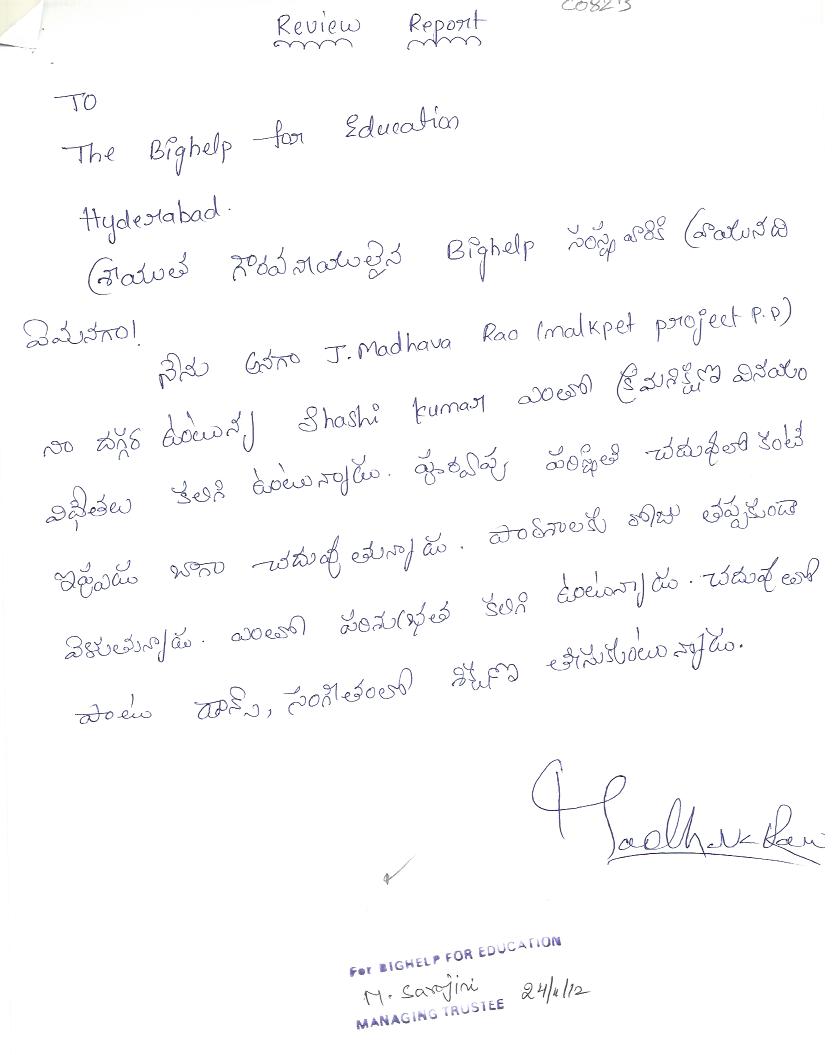 C082B
Review Report
TO
The Bighelp for Education
Hyderabad.
శ్రీయుత గౌరవనీయులైన Bighelp సంస్థ వారికి వ్రాయునది
ఏమనగా!
నేను అనగా J. Madhava Rao (malkpet project P.P)
నా దగ్గర ఉంటున్న Shashi kumar ఎంతో క్రమశిక్షణ వినయం
విధేతలు కలిగి ఉంటున్నాడు. పూర్వపు పరిస్థితి చదువులో కంటే
ఇప్పుడు బాగా చదువు తున్నాడు. పాఠశాలకు రోజు తప్పకుండా
వెళుతున్నాడు. ఎంతో పరిశుభ్రత కలిగి ఉంటున్నాడు. చదువు తో
పాటు డాన్స్, సంగీతంలో శిక్షణ తీసుకుంటున్నాడు.
Madhava Rao
For BIGHELP FOR EDUCATION
M. Sarojini 24/11/12
MANAGING TRUSTEE